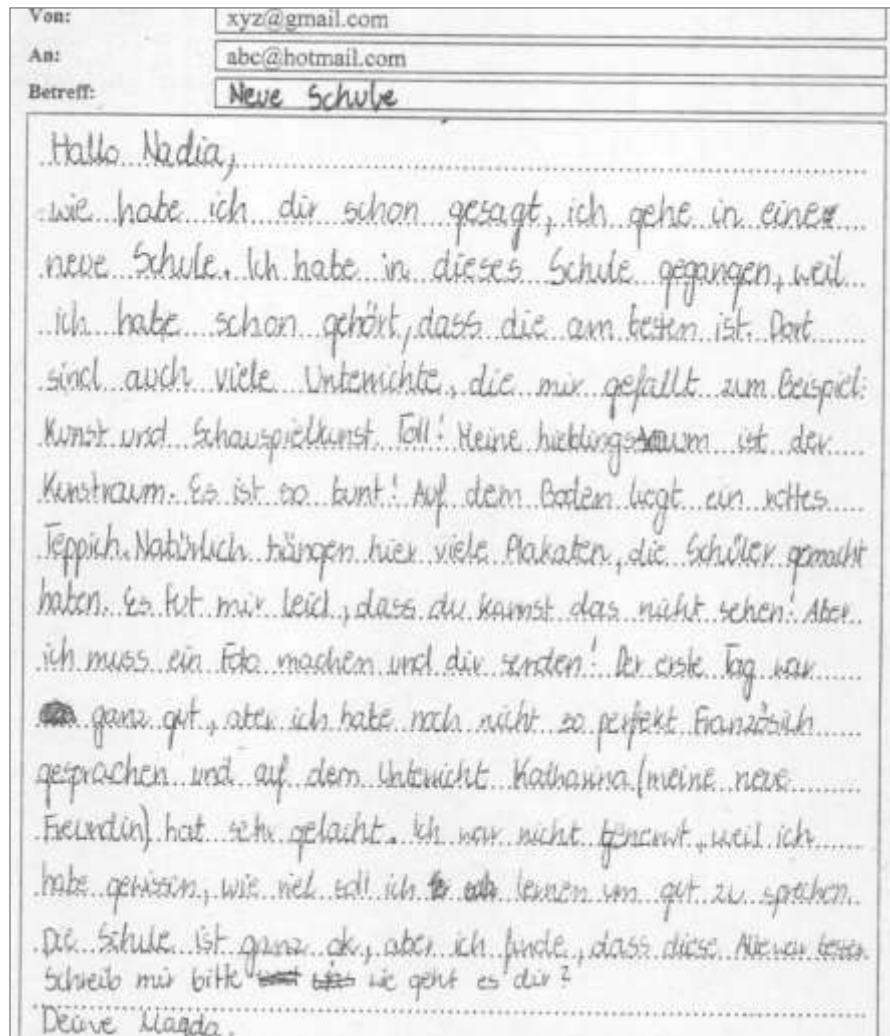 Von: xyz@gmail.com
An: abc@hotmail.com
Betreff: Neue Schule
Hallo Nadia,
wie habe ich dir schon gesagt, ich gehe in eine
neue Schule. Ich habe in dieses Schule gegangen, weil
ich habe schon gehört, dass die am besten ist. Dort
sind auch viele Unterrichte, die mir gefallt zum Beispiel:
Kunst und Schauspielkunst. Toll! Meine Lieblingsraum ist der
Kunstraum. Es ist so bunt! Auf dem Boden liegt ein rottes
Teppich. Natürlich hängen hier viele Plakaten, die Schüler gemacht
haben. Es tut mir leid, dass du kannst das nicht sehen! Aber
ich muss ein Foto machen und dir senden! Der erste Tag war
ganz gut, aber ich habe noch nicht so perfekt Französich
gesprochen und auf dem Unterricht Katharina (meine neue
Freundin) hat sehr gelacht. Ich war nicht genervt, weil ich
habe gewissen, wie viel soll ich lernen um gut zu sprechen.
Die Schule ist ganz ok, aber ich finde, dass diese Alte war besser
Schreib mir bitte wie geht es dir?
Deine Magda.